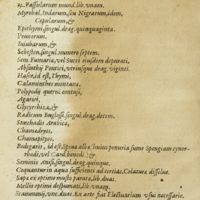 Passularum mund. lib. vnam.
Myrobal. Indarum, seu Nigrarum, idem,
Cepularum, &
Epithymi, singul. drag. quinquaginta.
Prunorum,
Iuiubarum, &
Sebesten, singul. numero septem.
Sem. Fumariæ, vel Succi eiusdem depurati,
Absinthij Pontici, vtriusque drag. viginti.
Hasce, id est, Thymi,
Calaminta montana,
Polypodij querni contusi,
Agarici,
Glycyrrhiza, &
Radicum Buglossi, singul. drag. decem.
Stœchadis Arabica,
Chamædryos,
Chamæpityos,
Bedegaris, id est Spina alba
Seminis Anisi, singul. drag. quinque.
Coquantur in aqua sufficienti ad tertias. Colatura dissolue.
Sapa ex optimo musto parata, lib. duas.
Mellis optimi despumati, lib. vnam.
Scammonij, vnc. duas. Ex arte fiat Electuarium vsui necessarie.